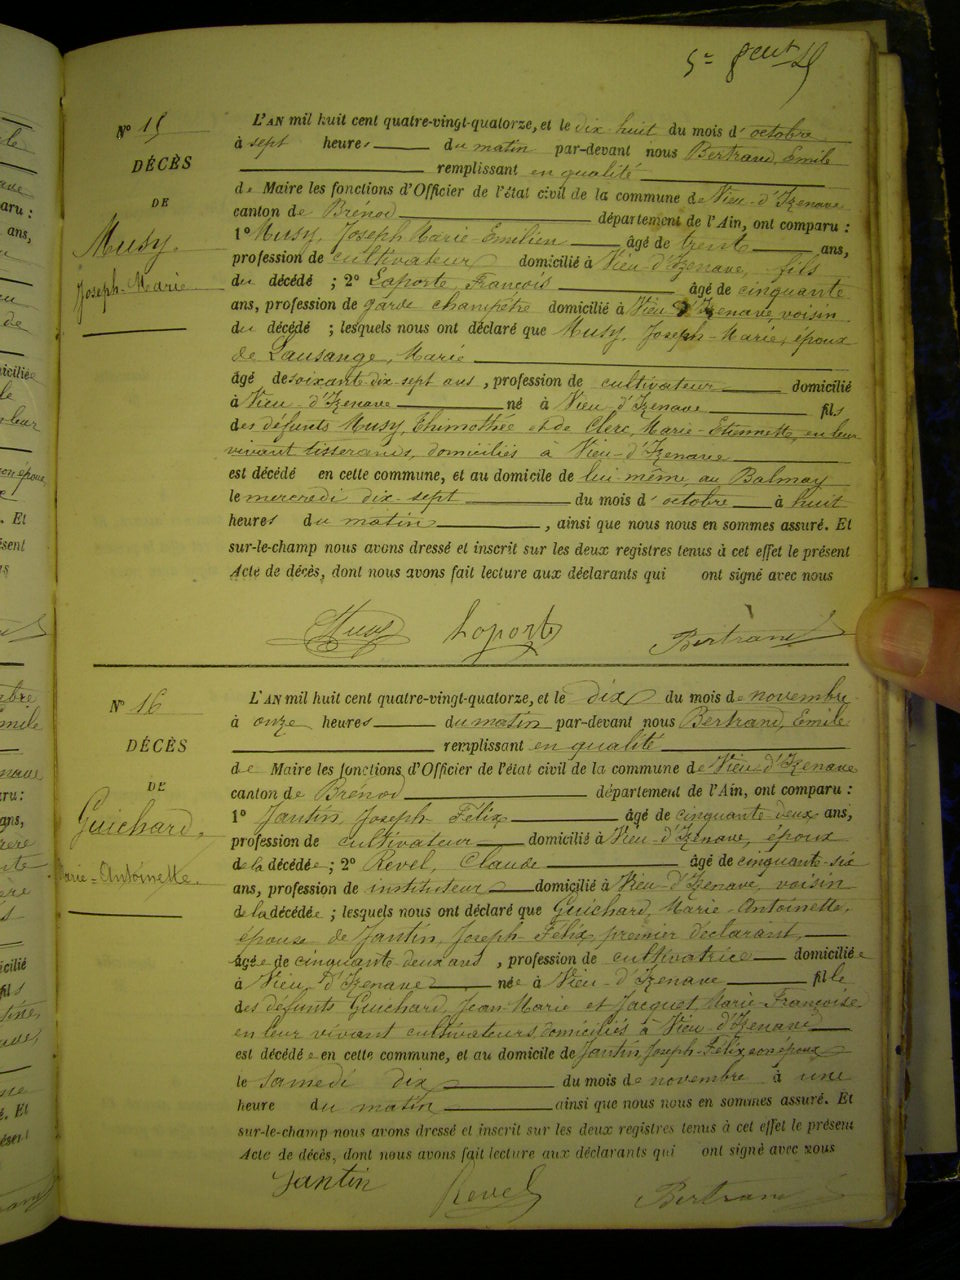 Nº 15
DÉCÈS
DE
Musy,
Joseph-Marie
L'AN mil huit cent quatre-vingt-quatorze, et le dix huit du mois d'octobre
à sept heures du matin par-devant nous Bertrand, Emile
remplissant en qualité
de Maire les fonctions d'Officier de l'état civil de la commune de Vieu-d'Izenave
canton de Brénod département de l'Ain, ont comparu :
1º Musy, Joseph Marie-Emilien âgé de trente ans,
profession de cultivateur domicilié à Vieu-d'Izenave, fils
du décédé ; 2º Laporte, François âgé de cinquante
ans, profession de garde champêtre domicilié à Vieu d'Izenave, voisin
du décédé ; lesquels nous ont déclaré que Musy, Joseph-Marie, époux
de Lausange, Marie
âgé de soixante-dix-sept ans, profession de cultivateur domicilié
à Vieu-d'Izenave né à Vieu-d'Izenave fils
des défunts Musy, Thimothée et de Clerc, Marie-Etiennette, en leur
vivant tisserands, domiciliés à Vieu-d'Izenave
est décédé en cette commune, et au domicile de lui-même, au Balmay
le mercredi dix-sept du mois d'octobre à huit
heures du matin, ainsi que nous nous en sommes assuré. Et
sur-le-champ nous avons dressé et inscrit sur les deux registres tenus à cet effet le présent
Acte de décès, dont nous avons fait lecture aux déclarants qui ont signé avec nous
Musy Laporte Bertrand
Nº 16
DÉCÈS
DE
Guichard,
Marie-Antoinette
L'AN mil huit cent quatre-vingt-quatorze, et le dix du mois de novembre
à onze heures du matin par-devant nous Bertrand, Emile
remplissant en qualité
de Maire les fonctions d'Officier de l'état civil de la commune de Vieu-d'Izenave
canton de Brénod département de l'Ain, ont comparu :
1º Jantin, Joseph-Félix âgé de cinquante-deux ans,
profession de cultivateur domicilié à Vieu-d'Izenave, époux
de la décédée ; 2º Revel, Claude âgé de cinquante-six
ans, profession de instituteur domicilié à Vieu-d'Izenave, voisin
de la décédée ; lesquels nous ont déclaré que Guichard, Marie-Antoinette,
épouse de Jantin, Joseph-Félix, premier déclarant,
âgée de cinquante-deux ans, profession de cultivatrice domiciliée
à Vieu-d'Izenave née à Vieu-d'Izenave fille
des défunts Guichard, Jean-Marie et Jacquet, Marie-Françoise
en leur vivant cultivateurs domiciliés à Vieu-d'Izenave
est décédée en cette commune, et au domicile de Jantin, Joseph-Félix, son époux
le samedi dix du mois de novembre à une
heure du matin ainsi que nous nous en sommes assuré. Et
sur-le-champ nous avons dressé et inscrit sur les deux registres tenus à cet effet le présent
Acte de décès, dont nous avons fait lecture aux déclarants qui ont signé avec nous
Jantin Revel Bertrand